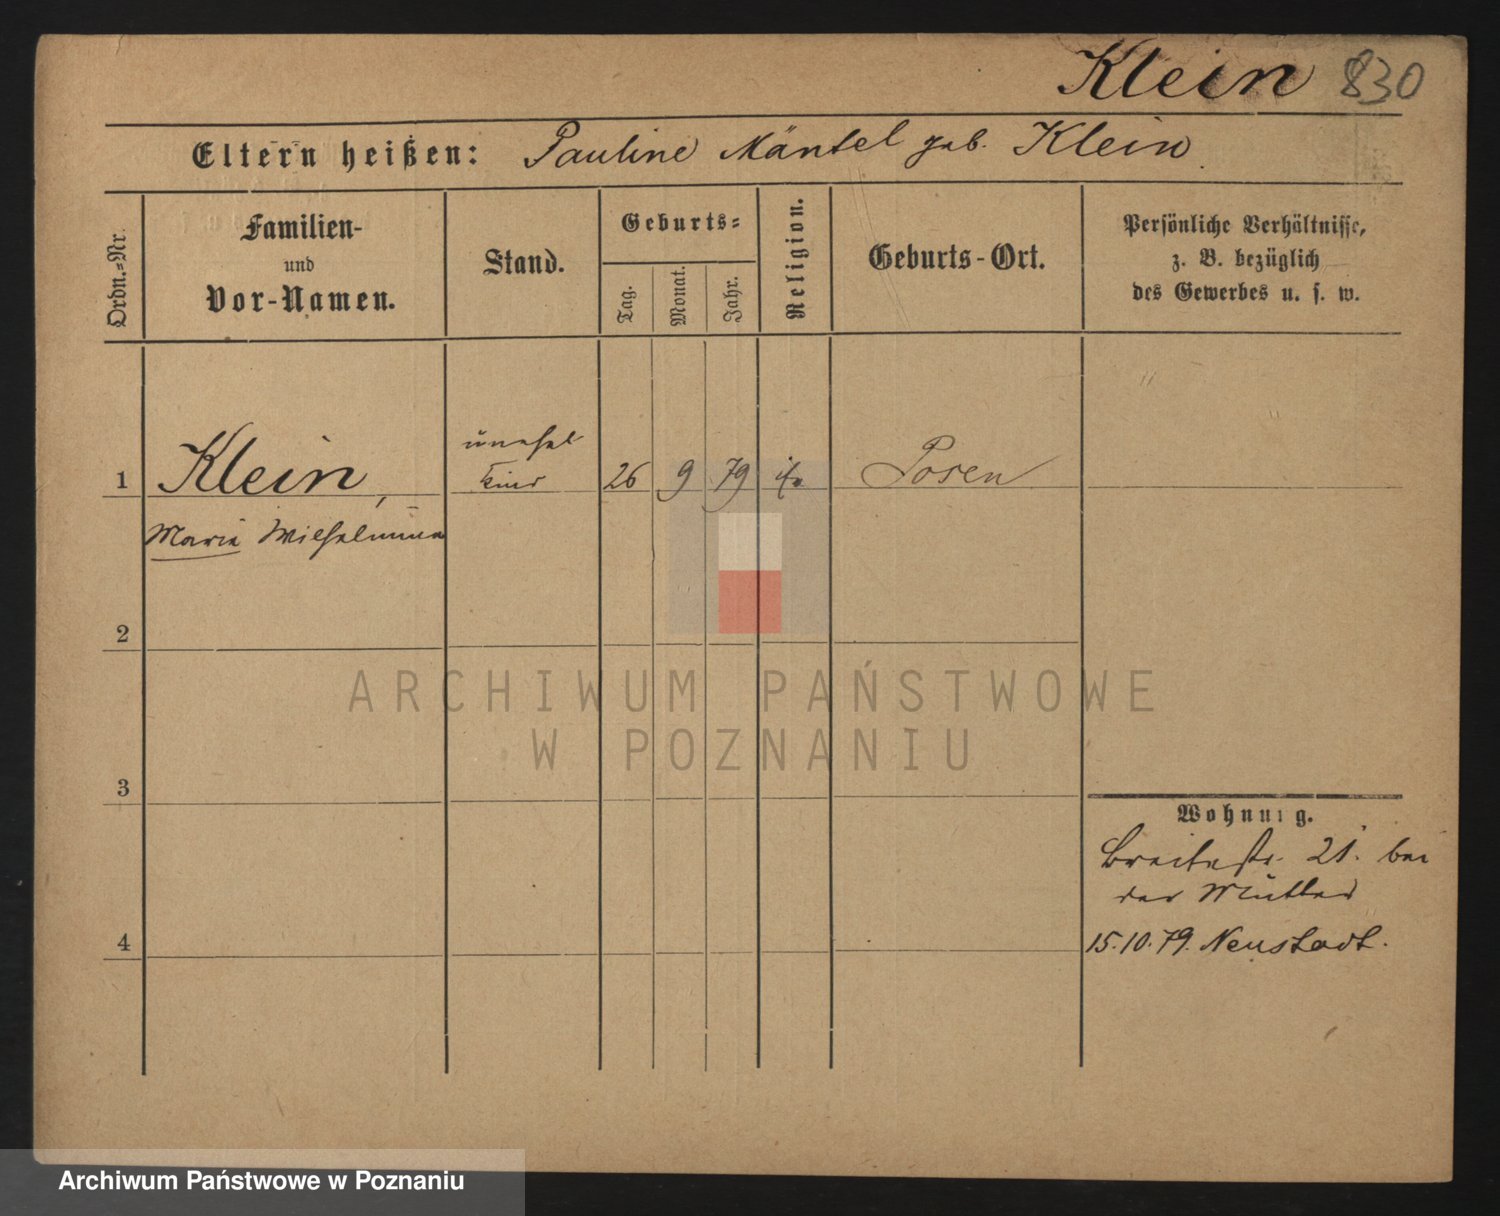 Klein 830
Eltern heißen: Pauline Mäntel geb. Klein
Ordn.=Nr.
Familien-
und
Vor-Namen.
Stand.
Geburts=
Tag.
Monat.
Jahr.
Religion.
Geburts-Ort.
Persönliche Verhältnisse,
z. B. bezüglich
des Gewerbes u. s. w.
unehel
1 Klein, Kind 26 9 79 Posen
Marie Wilhelmine
2
ARCHIWUM PAŃSTWOWE
W POZNANIU
3
Wohnung.
Breitestr. 21. bei
der Mutter
4 15.10.79. Neustadt.
Archiwum Państwowe w Poznaniu